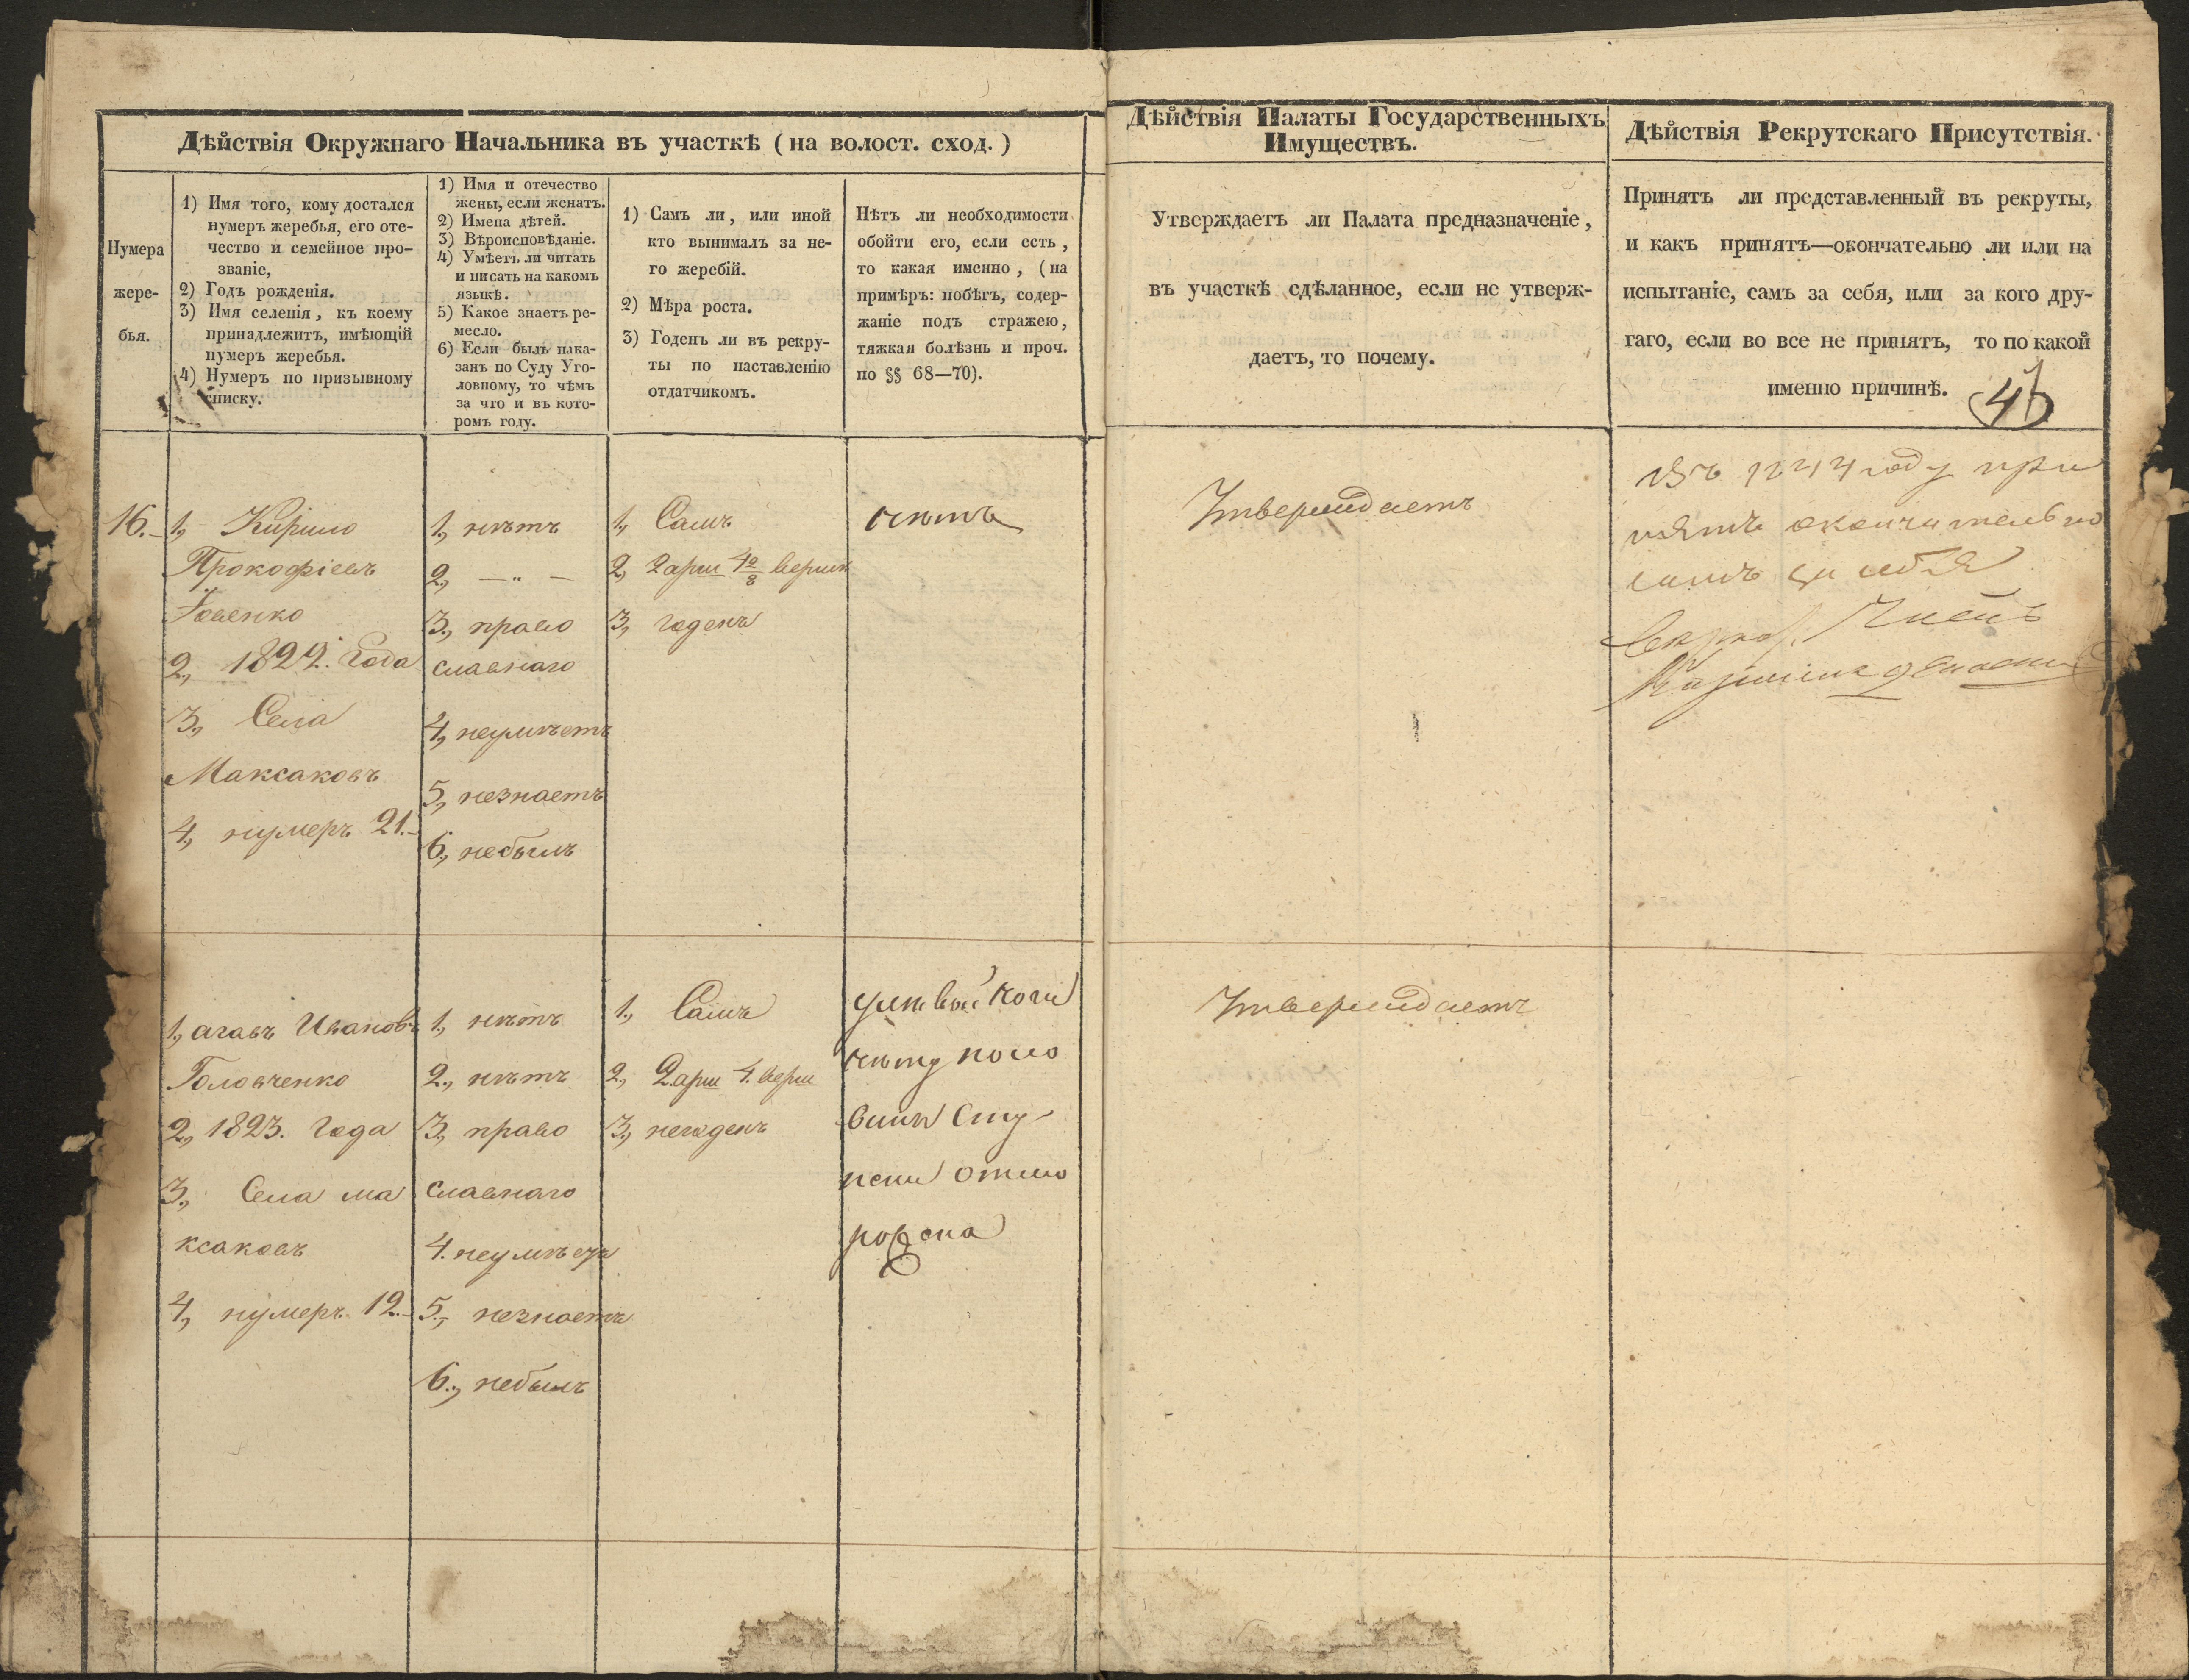 Дѣйствія Окружнаго Начальника въ участкѣ (на волост. сход.)
Нумера
жере-
бья.
1) Имя того, кому достался
нумеръ жеребья, его оте-
чество и семейное про-
званіе,
2) Годъ рожденія.
3) Имя селенія, къ коему
принадлежитъ, имѣющій
нумеръ жеребья.
4) Нумеръ по призывному
списку.
1) Имя и отечество
жены, если женатъ.
2) Имена дѣтей.
3) Вѣроисповѣданіе.
4) Умѣетъ ли читать
и писать на какомъ
языкѣ.
5) Какое знаетъ ре-
месло.
6) Если былъ нака-
занъ по Суду Уго-
ловному, то чѣмъ
за что и въ кото-
ромъ году.
1) Самъ ли, или иной
кто вынималъ за не-
го жеребій.
2) Мѣра роста.
3) Годенъ ли въ рекру-
ты по наставленію
отдатчикомъ.
Нѣтъ ли необходимости
обойти его, если есть,
то какая именно, (на
примѣръ: побѣгъ, содер-
жаніе подъ стражею,
тяжкая болѣзнь и проч.
по §§ 68—70).
Дѣйствія Палаты Государственныхъ
Имуществъ.
Утверждаетъ ли Палата предназначеніе,
въ участкѣ сдѣланное, если не утверж-
даетъ, то почему.
Дѣйствія Рекрутскаго Присутствія.
Принятъ ли представленный въ рекруты,
и какъ принятъ—окончательно ли или на
испытаніе, самъ за себя, или за кого дру-
гаго, если во все не принятъ, то по какой
именно причинѣ.
16.
1, Кирило
Прокофіевъ
2, 1822. Года
3, Села
Максаковъ
4, нумеръ 21.
1, нѣтъ
2, — „ —
3, право
славнаго
4, неумѣетъ
5, незнаетъ
6, небылъ
1, Самъ
2, 2 арш 4 2/8 вершк
3, годенъ
нѣтъ
Утверждаетъ
Въ 1844 году при
нятъ окончательно
самъ за себя
1, агавъ Ивановъ
Головченко
2, 1823. Года
3, Села ма
ксаковъ
4, нумеръ 12.
1, нѣтъ
2, нѣтъ
3, право
славнаго
4. неумѣетъ
5, незнаетъ
6, небылъ
1, Самъ
2, 2 арш 4. верш
3, негоденъ
ноги
нѣту поло
вины сту
пени отмо
рожена
Утверждаетъ